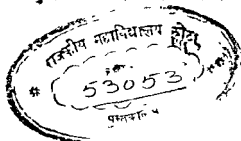 राजकीय महाविद्यालय कोटा
53053
पुस्तकालय